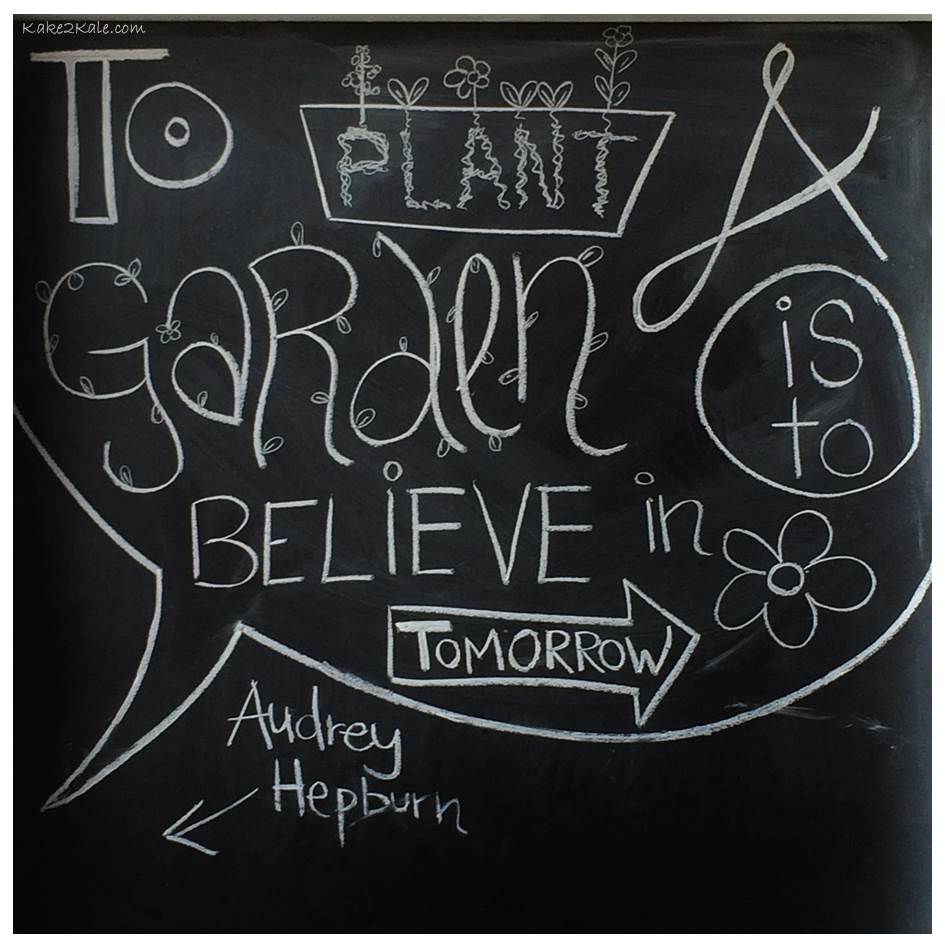 Kake2Kale.com
To PLANT A
GARden is
to
BELiEVE in
TOMORROW
Audrey
Hepburn